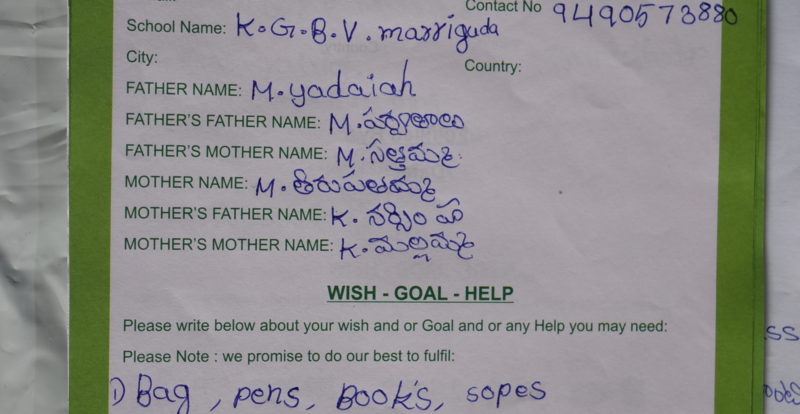 Contact No 9490573880
School Name: K.G.B.V. marriguda
City:
Country:
FATHER NAME: M. yadaiah
FATHER'S FATHER NAME: M. పర్వతాలు
FATHER'S MOTHER NAME: M. సత్తమ్మ
MOTHER NAME: M. తిరుపతమ్మ
MOTHER'S FATHER NAME: K. నర్సింహ
MOTHER'S MOTHER NAME: K. మల్లమ్మ
WISH - GOAL - HELP
Please write below about your wish and or Goal and or any Help you may need:
Please Note : we promise to do our best to fulfil:
1) Bag, pens, Book's, sopes